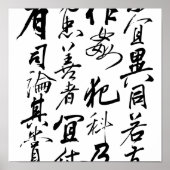 宜異同若
作姦犯科及
忠善者宜付
有司論其賞